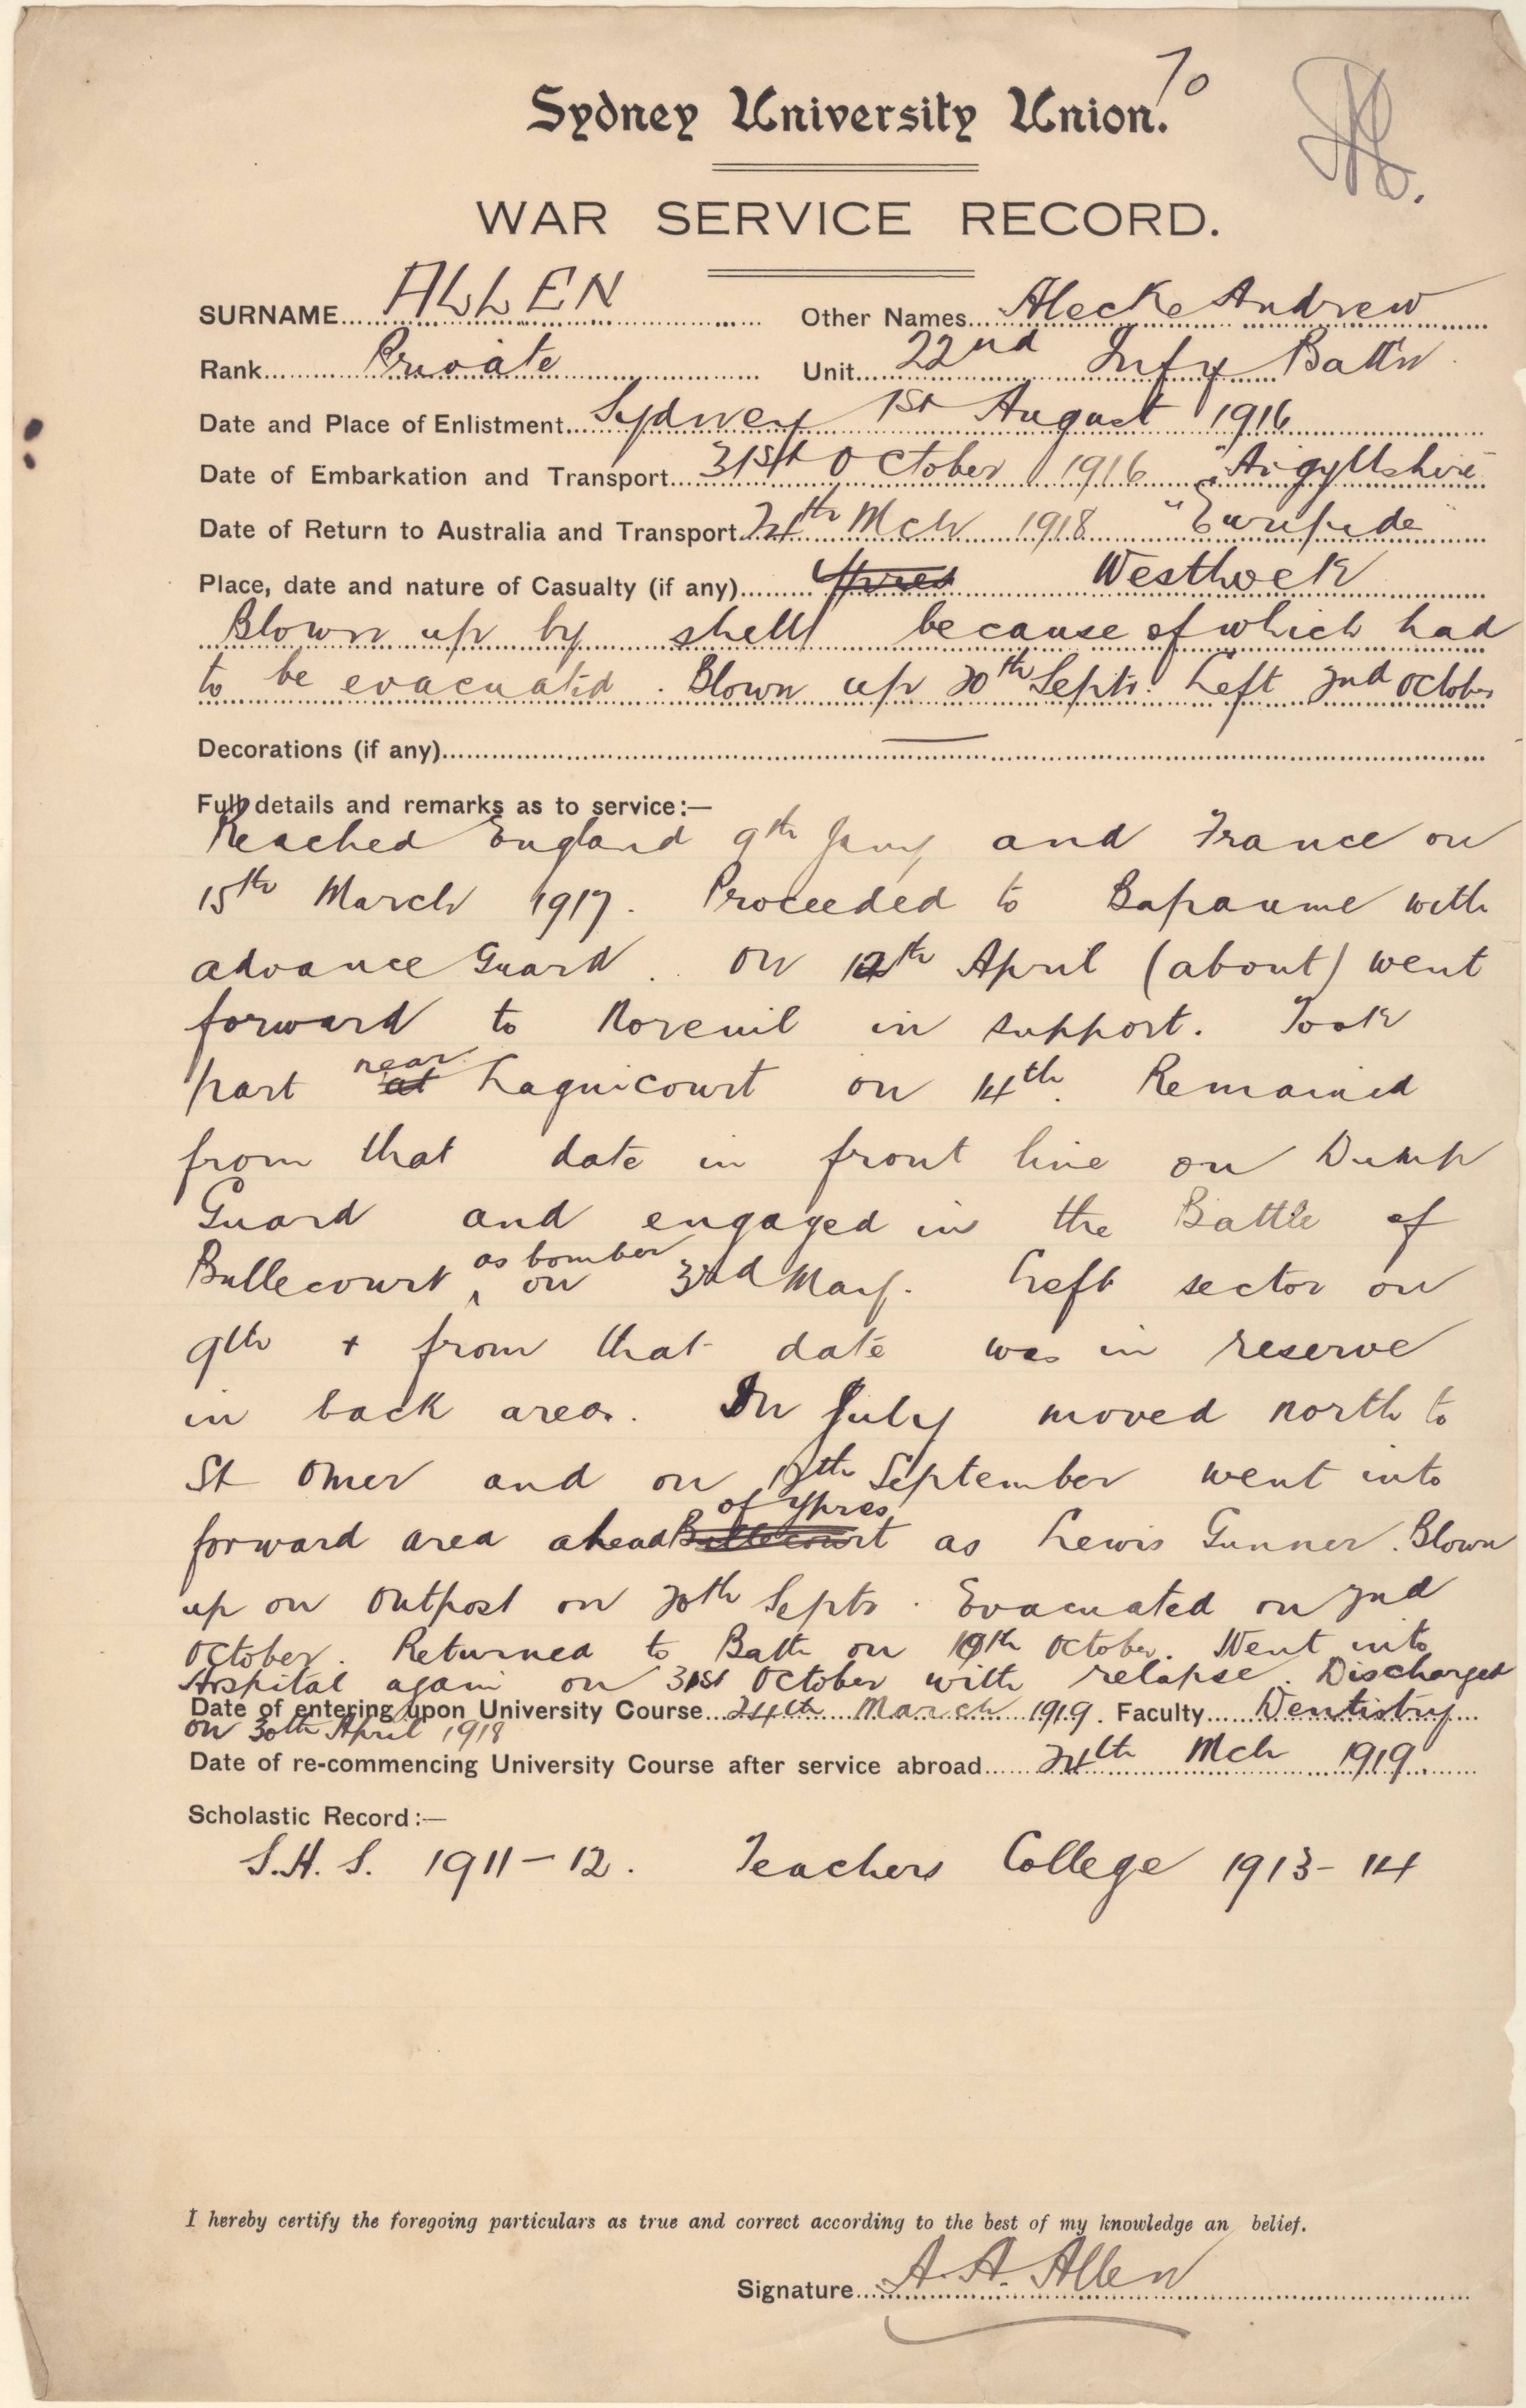 70
Sydney University Union.
WAR SERVICE RECORD.
SURNAME... ALLEN Other Names... Alecke Andrew
Rank... Private Unit... 22nd Infy Battn
Date and Place of Enlistment... Sydney 1st August 1916
Date of Embarkation and Transport... 31st October 1916 "Argyllshire"
Date of Return to Australia and Transport... 24th Mch 1918 "Euripide"
Place, date and nature of Casualty (if any)... Ypres Westhoek
Blown up by shell because of which had
to be evacuated. Blown up 20th Septr. Left 2nd October
Decorations (if any)... —
Full details and remarks as to service:—
Reached England 9th Jany and France on
15th March 1917. Proceeded to Bapaume with
advance Guard. On 12th April (about) went
forward to Noreuil in support. Took
part at near Lagnicourt on 14th. Remained
from that date in front line on Dump
Guard and engaged in the Battle of
Bullecourt as bomber on 3rd May. Left sector on
9th + from that date was in reserve
in back area. In July moved north to
St Omer and on September went into
forward area ahead Bullecourt of Ypres as Lewis Gunner. Blown
up on Outpost on 20th Septr. Evacuated on 2nd
October. Returned to Battn on 19th October. Went into
Hospital again on 31st October with relapse. Discharged
on 30th April 1918
Date of entering upon University Course... 24th March 1919. Faculty... Dentistry
Date of re-commencing University Course after service abroad... 24th Mch 1919.
Scholastic Record:—
S.H.S. 1911–12. Teachers College 1913–14
I hereby certify the foregoing particulars as true and correct according to the best of my knowledge an belief.
Signature... A. A. Allen